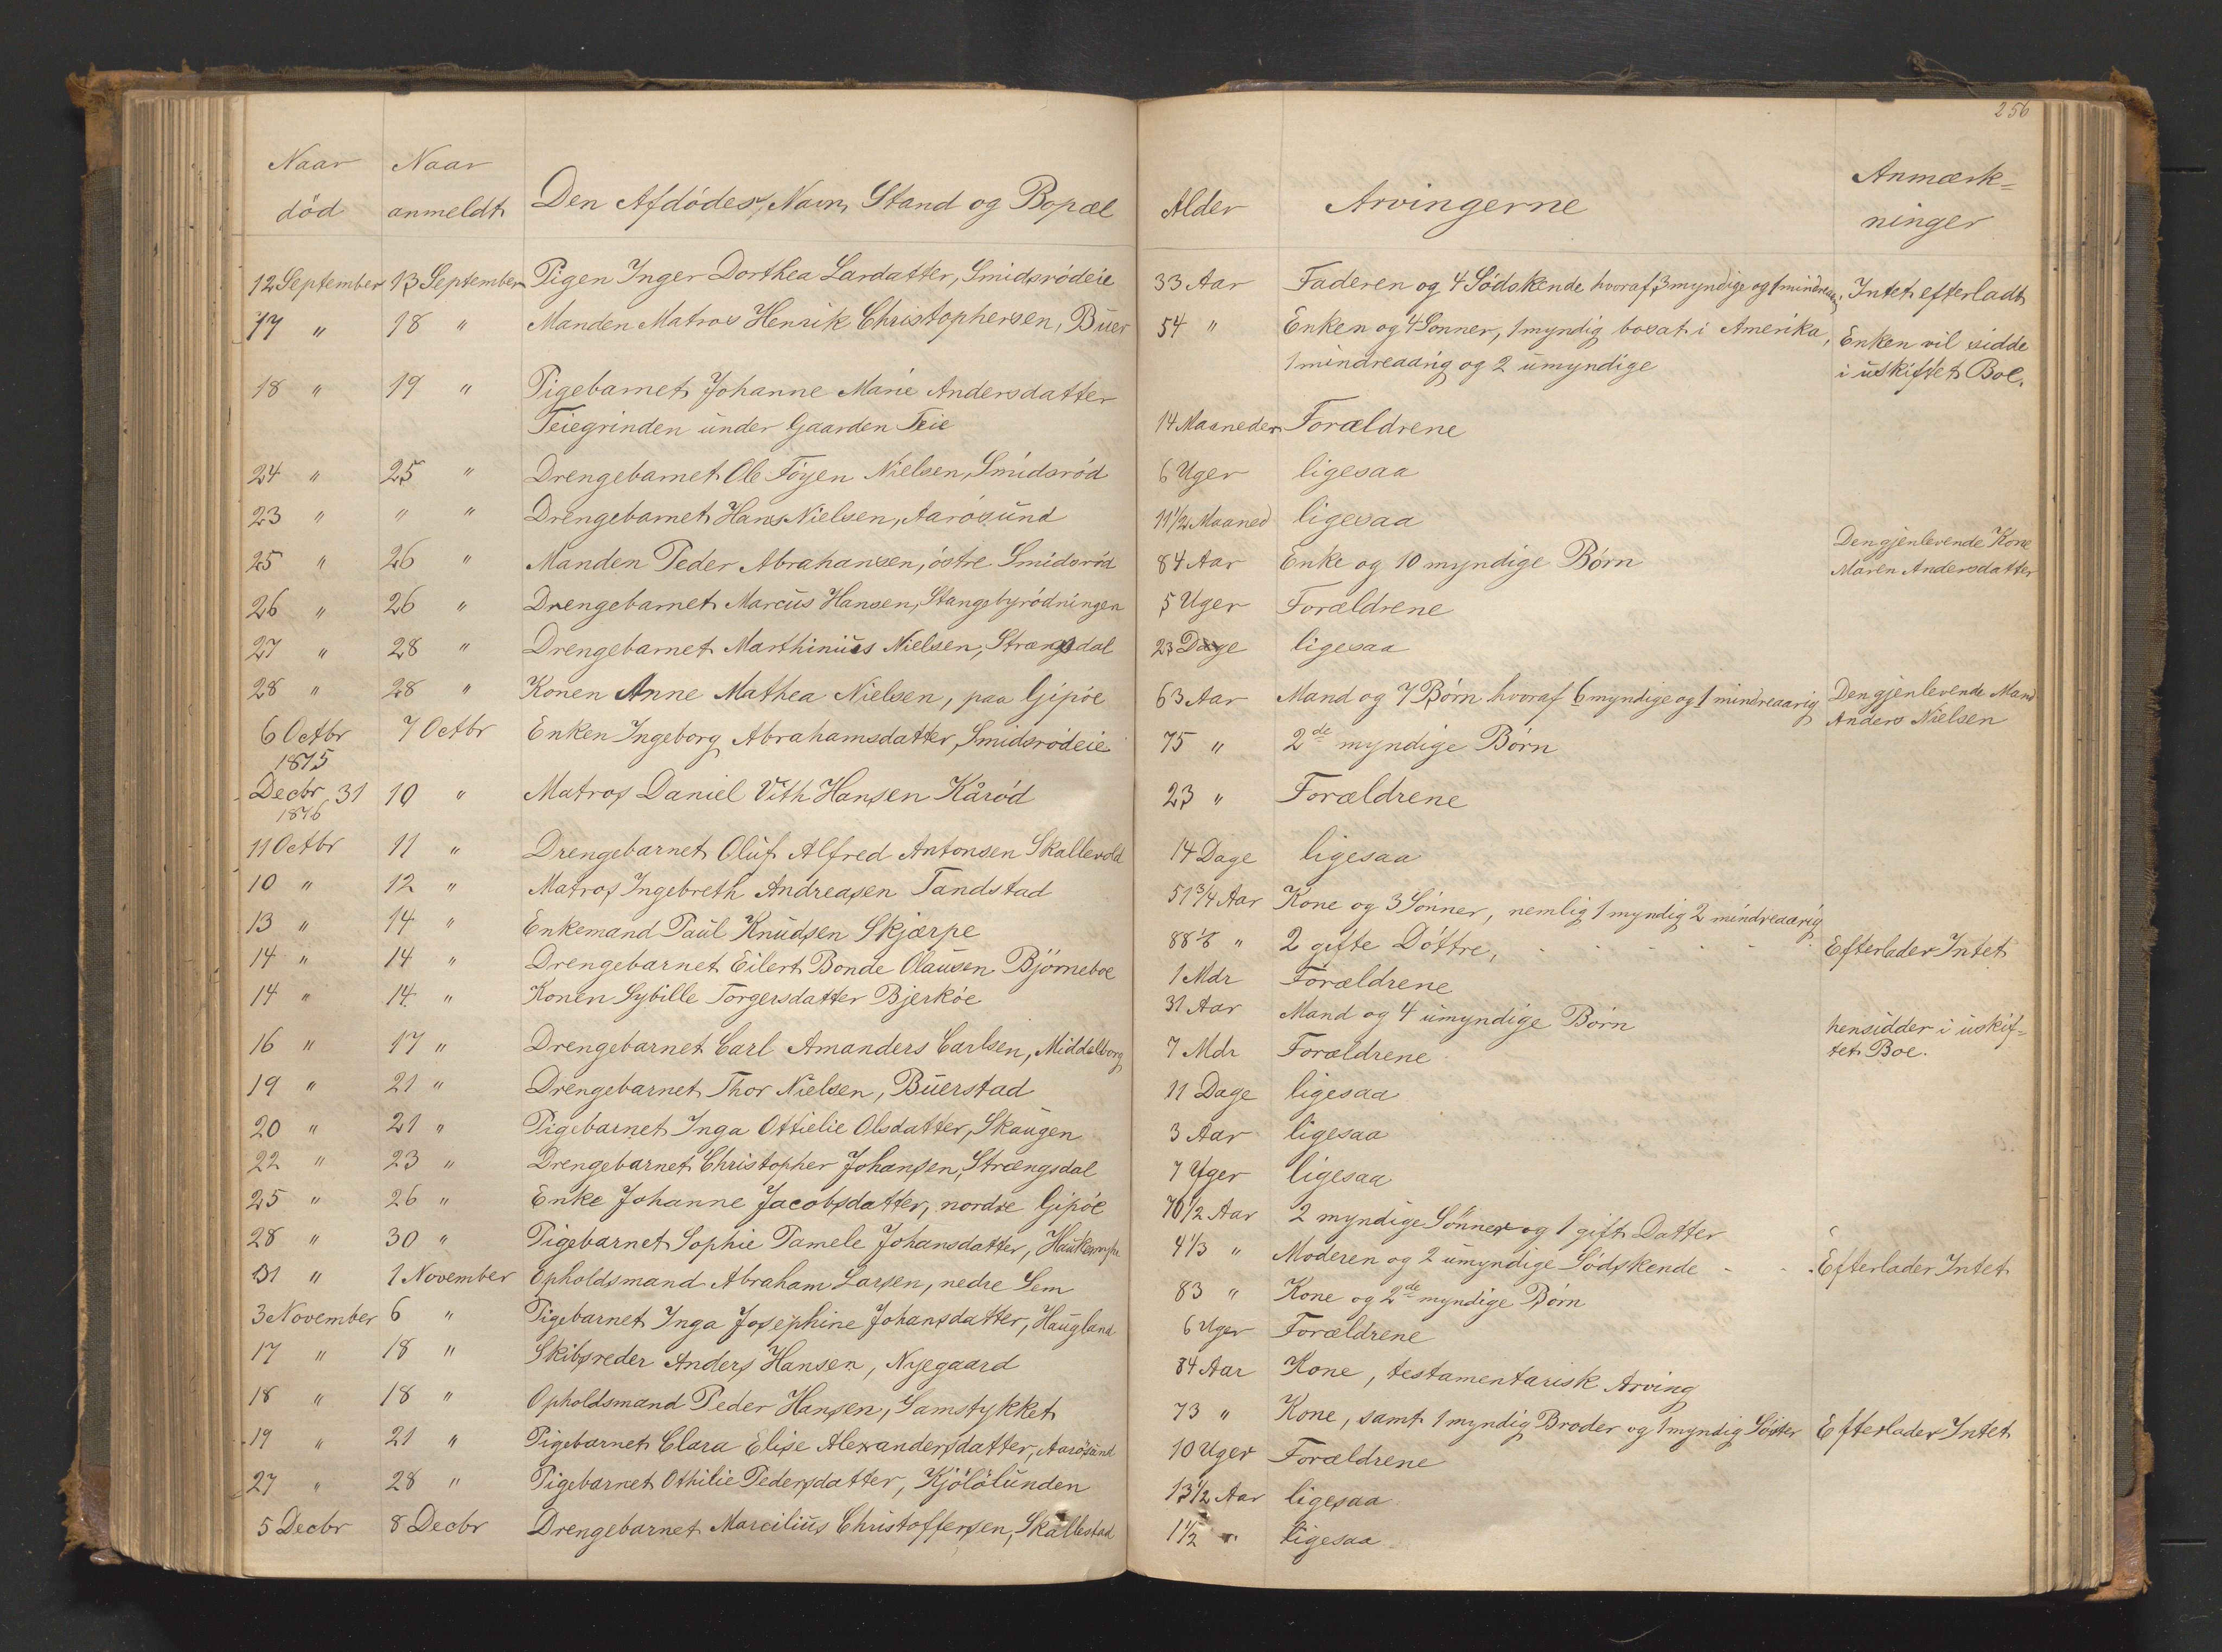 256
Naar død Naar anmeldt Den Afdödes Navn, Stand og Bopæl Alder Arvingerne Anmærk=ninger
12 September 13 September Pigen Inger Dorthea Larsdatter, Smidsrödeie 33 Aar Faderen og 4 Södskende hvoraf 3 myndige og 1 mindreaar. Intet efterladt
17 " 18 " Manden Matros Henrik Christophersen, Buer 54 " Enken og 4 Sønner, 1 myndig bosat i Amerika, Enken vil sidde
1 mindreaarig og 2 umyndige i uskiftet Boe.
18 " 19 " Pigebarnet Johanne Marie Andersdatter
Teiegrinden under Gaarden Teie 14 Maaneder Forældrene
24 " 25 " Drengebarnet Ole Föyen Nielsen, Smidsröd 6 Uger ligesaa
23 " " " Drengebarnet Hans Nielsen, Aarösund 11 1/2 Maaned ligesaa
25 " 26 " Manden Peder Abrahamsen, östre Smidsröd 84 Aar Enke og 10 myndige Børn Den gjenlevende Kone
Maren Andersdatter
26 " 26 " Drengebarnet Marcus Hansen, Stangebyrödningen 5 Uger Forældrene
27 " 28 " Drengebarnet Marthinius Nielsen, Strængsdal 23 Dage ligesaa
28 " 28 " Konen Anne Mathea Nielsen, paa Gipöe 63 Aar Mand og 7 Børn hvoraf 6 myndige og 1 mindreaarig Den gjenlevende Mand
Anders Nielsen
6 Octbr 7 Octbr Enken Ingeborg Abrahamsdatter, Smidsrödeie 75 " 2de myndige Børn
1875
Decbr 31 10 " Matros Daniel Vith Hansen Kåröd 23 " Forældrene
1876
11 Octbr 11 " Drengebarnet Oluf Alfred Antonsen Skallevold 14 Dage ligesaa
10 " 12 " Matros Ingebreth Andreasen Tandstad 51 3/4 Aar Kone og 3 Sönner, nemlig 1 myndig 2 mindreaarig
13 " 14 " Enkemand Paul Knudsen Skjærpe 88 " 2 gifte Döttre, Efterlader Intet
14 " 14 " Drengebarnet Eilert Bonde Olausen Björneboe 1 Mdr Forældrene
14 " 14 " Konen Sybille Torgersdatter Bjerköe 31 Aar Mand og 4 umyndige Børn hensidder i uskif=
tet Boe.
16 " 17 " Drengebarnet Carl Amanders Carlsen, Middelborg 7 Mdr Forældrene
19 " 21 " Drengebarnet Thor Nielsen, Buerstad 11 Dage ligesaa
20 " 21 " Pigebarnet Inga Ottielie Olsdatter, Skaugen 3 Aar ligesaa
22 " 23 " Drengebarnet Christopher Johansen, Strængsdal 7 Uger ligesaa
25 " 26 " Enke Johanne Jacobsdatter, nordre Gipöe 70 1/2 Aar 2 myndige Sönner og 1 gift Datter
28 " 30 " Pigebarnet Sophie Pamele Johansdatter, 4 1/3 " Moderen og 2 umyndige Södskende Efterlader Intet
31 " 1 November Opholdsmand Abraham Larsen, nedre Sem 83 " Kone og 2de myndige Børn
3 November 6 " Pigebarnet Inga Josephine Johansdatter, Haugland 6 Uger Forældrene
17 " 18 " Skibsreder Anders Hansen, Nyegaard 84 Aar Kone, testamentarisk Arving
18 " 18 " Opholdsmand Peder Hansen, Gamstykket 73 " Kone, samt 1 myndig Broder og 1 myndig Söster Efterlader Intet
19 " 21 " Pigebarnet Clara Elise Alexandersdatter, Aarösund 10 Uger Forældrene
27 " 28 " Pigebarnet Othilie Pedersdatter, Kjölölunden 13 1/2 Aar ligesaa
5 Decbr 8 Decbr Drengebarnet Marcilius Christoffersen, Skallestad 1 1/2 " ligesaa